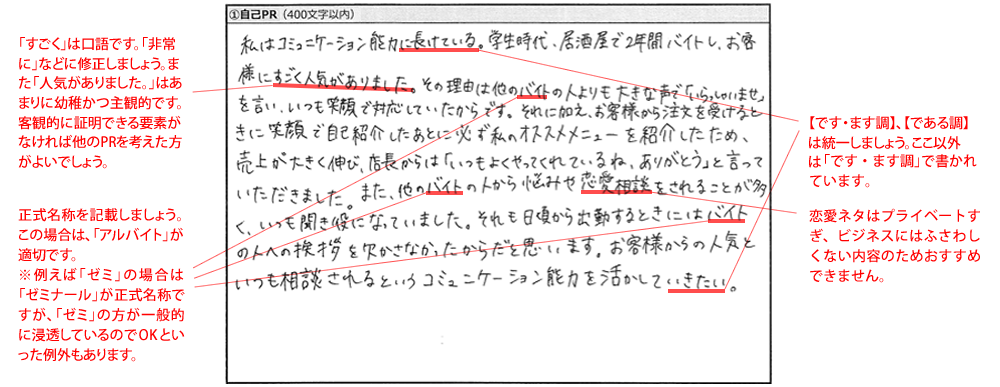 ①自己PR（400文字以内）
私はコミュニケーション能力に長けている。学生時代、居酒屋で2年間バイトし、お客
様にすごく人気がありました。その理由は他のバイトの人よりも大きな声で「いらっしゃいませ」
を言い、いつも笑顔で対応していたからです。それに加え、お客様から注文を受けると
きに笑顔で自己紹介したあとに必ず私のオススメメニューを紹介したため、
売上が大きく伸び、店長からは「いつもよくやってくれているね、ありがとう」と言って
いただきました。また、他のバイトの人から悩みや恋愛相談をされることが多
く、いつも聞き役になっていました。それも日頃から出勤するときにはバイト
の人への挨拶を欠かさなかったからだと思います。お客様からの人気と
いつも相談されるというコミュニケーション能力を活かしていきたい。
「すごく」は口語です。「非常
に」などに修正しましょう。ま
た「人気がありました。」はあ
まりに幼稚かつ主観的です。
客観的に証明できる要素が
なければ他のPRを考えた方
がよいでしょう。
正式名称を記載しましょう。
この場合は、「アルバイト」が
適切です。
※例えば「ゼミ」の場合は
「ゼミナール」が正式名称で
すが、「ゼミ」の方が一般的
に浸透しているのでOKとい
った例外もあります。
【です・ます調】、【である調】
は統一しましょう。ここ以外
は「です・ます調」で書かれ
ています。
恋愛ネタはプライベートす
ぎ、ビジネスにはふさわし
くない内容のためおすすめ
できません。